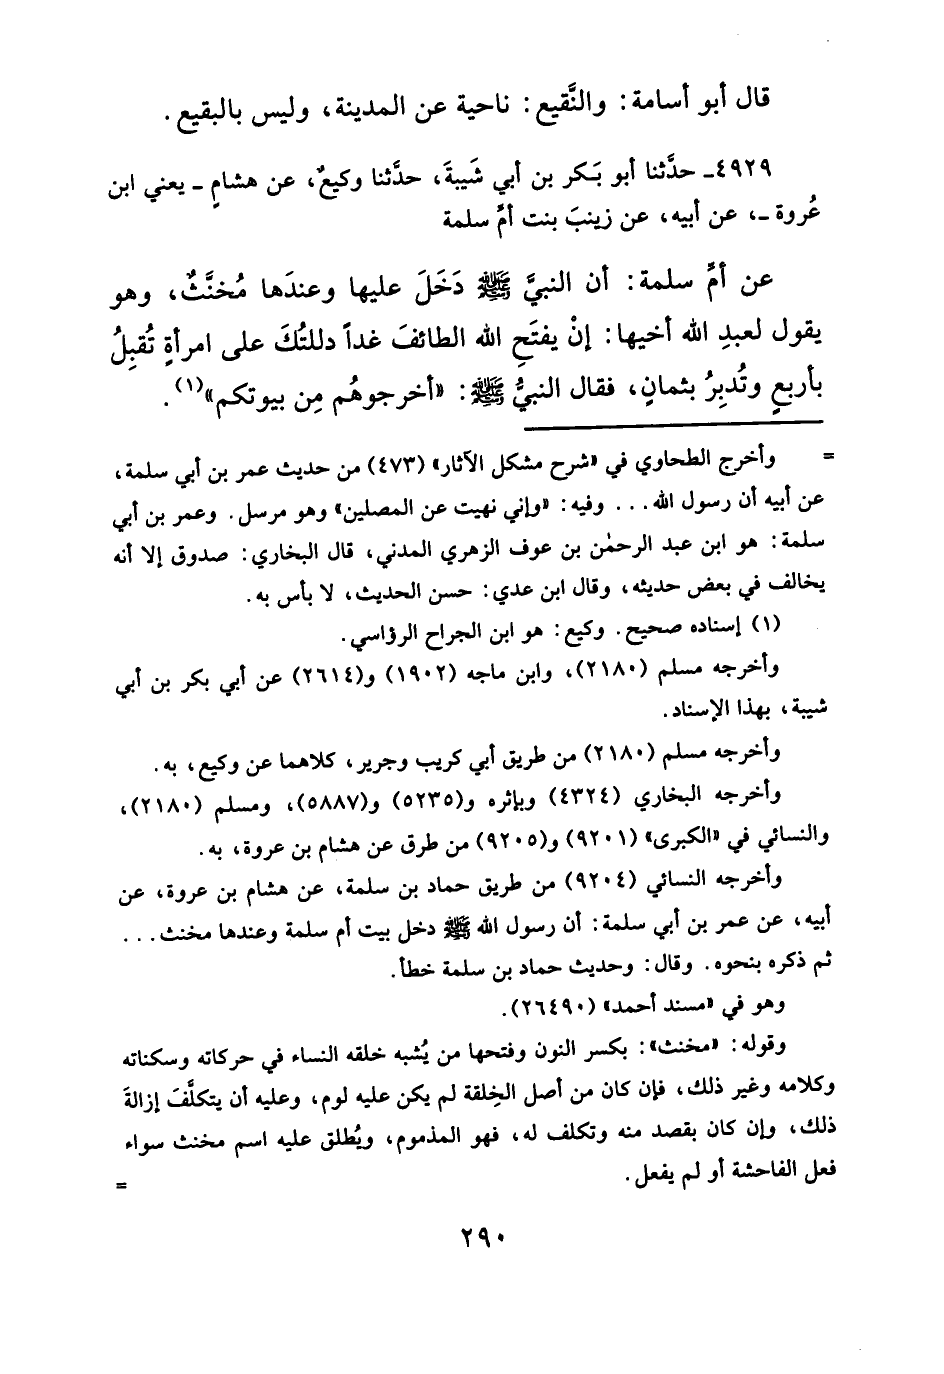 قال أبو أسامة: والنَّقيع: ناحية عن المدينة، وليس بالبقيع.
٤٩٢٩ـ حدَّثنا أبو بَـكر بن أبي شَيبةَ، حدَّثنا وكيعٌ، عن هشامٍ ـ يعني ابن
عُروة ـ، عن أبيه، عن زينبَ بنت أمِّ سلمة
عن أمِّ سلمة: أن النبيَّ ﷺ دَخَلَ عليها وعندَها مُخنَّثٌ، وهو
يقول لعبدِ الله أخيها: إنْ يفتَحِ الله الطائفَ غداً دللتُكَ على امرأةٍ تُقبِلُ
بأربعٍ وتُدبِرُ بثمانٍ، فقال النبيُّ ﷺ: «أخرجوهُم مِن بيوتكم»(١).
= وأخرج الطحاوي في «شرح مشكل الآثار» (٤٧٣) من حديث عمر بن أبي سلمة،
عن أبيه أن رسول الله... وفيه: «وإني نهيت عن المصلين» وهو مرسل. وعمر بن أبي
سلمة: هو ابن عبد الرحمٰن بن عوف الزهري المدني، قال البخاري: صدوق إلا أنه
يخالف في بعض حديثه، وقال ابن عدي: حسن الحديث، لا بأس به.
(١) إسناده صحيح. وكيع: هو ابن الجراح الرؤاسي.
وأخرجه مسلم (٢١٨٠)، وابن ماجه (١٩٠٢) و(٢٦١٤) عن أبي بكر بن أبي
شيبة، بهذا الإسناد.
وأخرجه مسلم (٢١٨٠) من طريق أبي كريب وجرير، كلاهما عن وكيع، به.
وأخرجه البخاري (٤٣٢٤) وبإثره و(٥٢٣٥) و(٥٨٨٧)، ومسلم (٢١٨٠)،
والنسائي في «الكبرى» (٩٢٠١) و(٩٢٠٥) من طرق عن هشام بن عروة، به.
وأخرجه النسائي (٩٢٠٤) من طريق حماد بن سلمة، عن هشام بن عروة، عن
أبيه، عن عمر بن أبي سلمة: أن رسول الله ﷺ دخل بيت أم سلمة وعندها مخنث...
ثم ذكره بنحوه. وقال: وحديث حماد بن سلمة خطأ.
وهو في «مسند أحمد» (٢٦٤٩٠).
وقوله: «مخنث»: بكسر النون وفتحها من يُشبه خلقه النساء في حركاته وسكناته
وكلامه وغير ذلك، فإن كان من أصل الخِلقة لم يكن عليه لوم، وعليه أن يتكلَّفَ إزالةَ
ذلك، وإن كان بقصد منه وتكلف له، فهو المذموم، ويُطلق عليه اسم مخنث سواء
فعل الفاحشة أو لم يفعل. =
٢٩٠